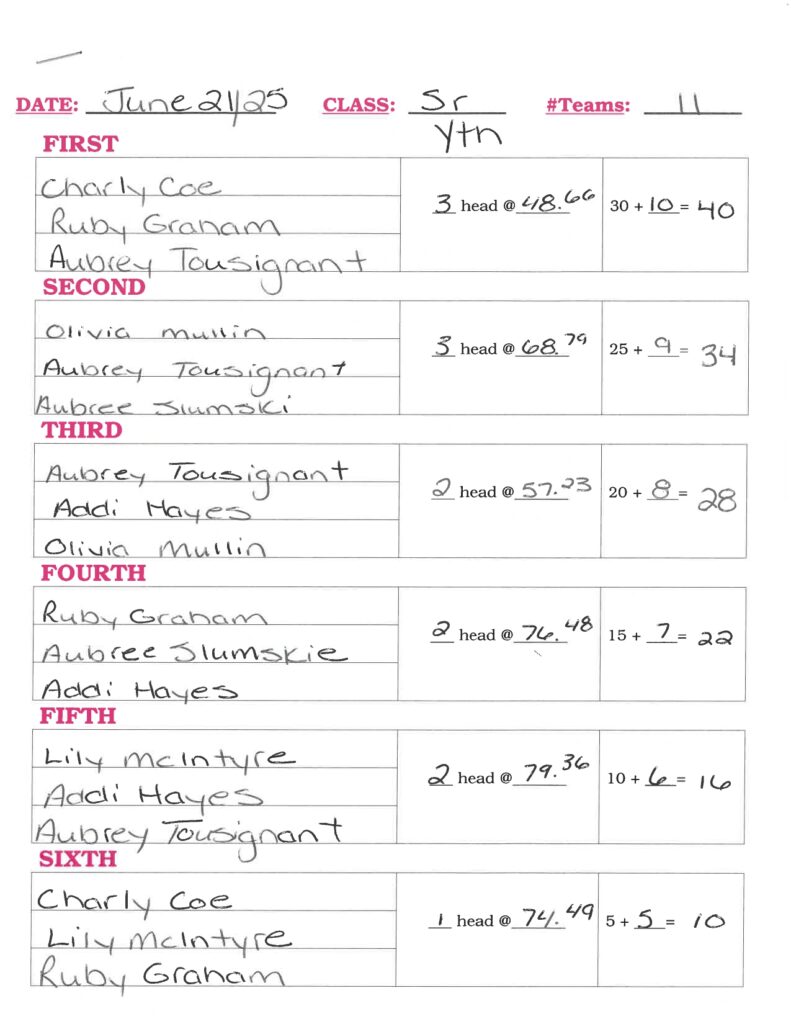 DATE: June 21/25 CLASS: Sr Yth #Teams: 11
FIRST
Charly Coe
Ruby Graham
Aubrey Tousignant
3 head @ 48.66
30 + 10 = 40
SECOND
Olivia Mullin
Aubrey Tousignant
Aubree Slumski
3 head @ 68.79
25 + 9 = 34
THIRD
Aubrey Tousignant
Addi Hayes
Olivia Mullin
2 head @ 57.23
20 + 8 = 28
FOURTH
Ruby Graham
Aubree Slumskie
Addi Hayes
2 head @ 76.48
15 + 7 = 22
FIFTH
Lily McIntyre
Addi Hayes
Aubrey Tousignant
2 head @ 79.36
10 + 6 = 16
SIXTH
Charly Coe
Lily McIntyre
Ruby Graham
1 head @ 74.49
5 + 5 = 10